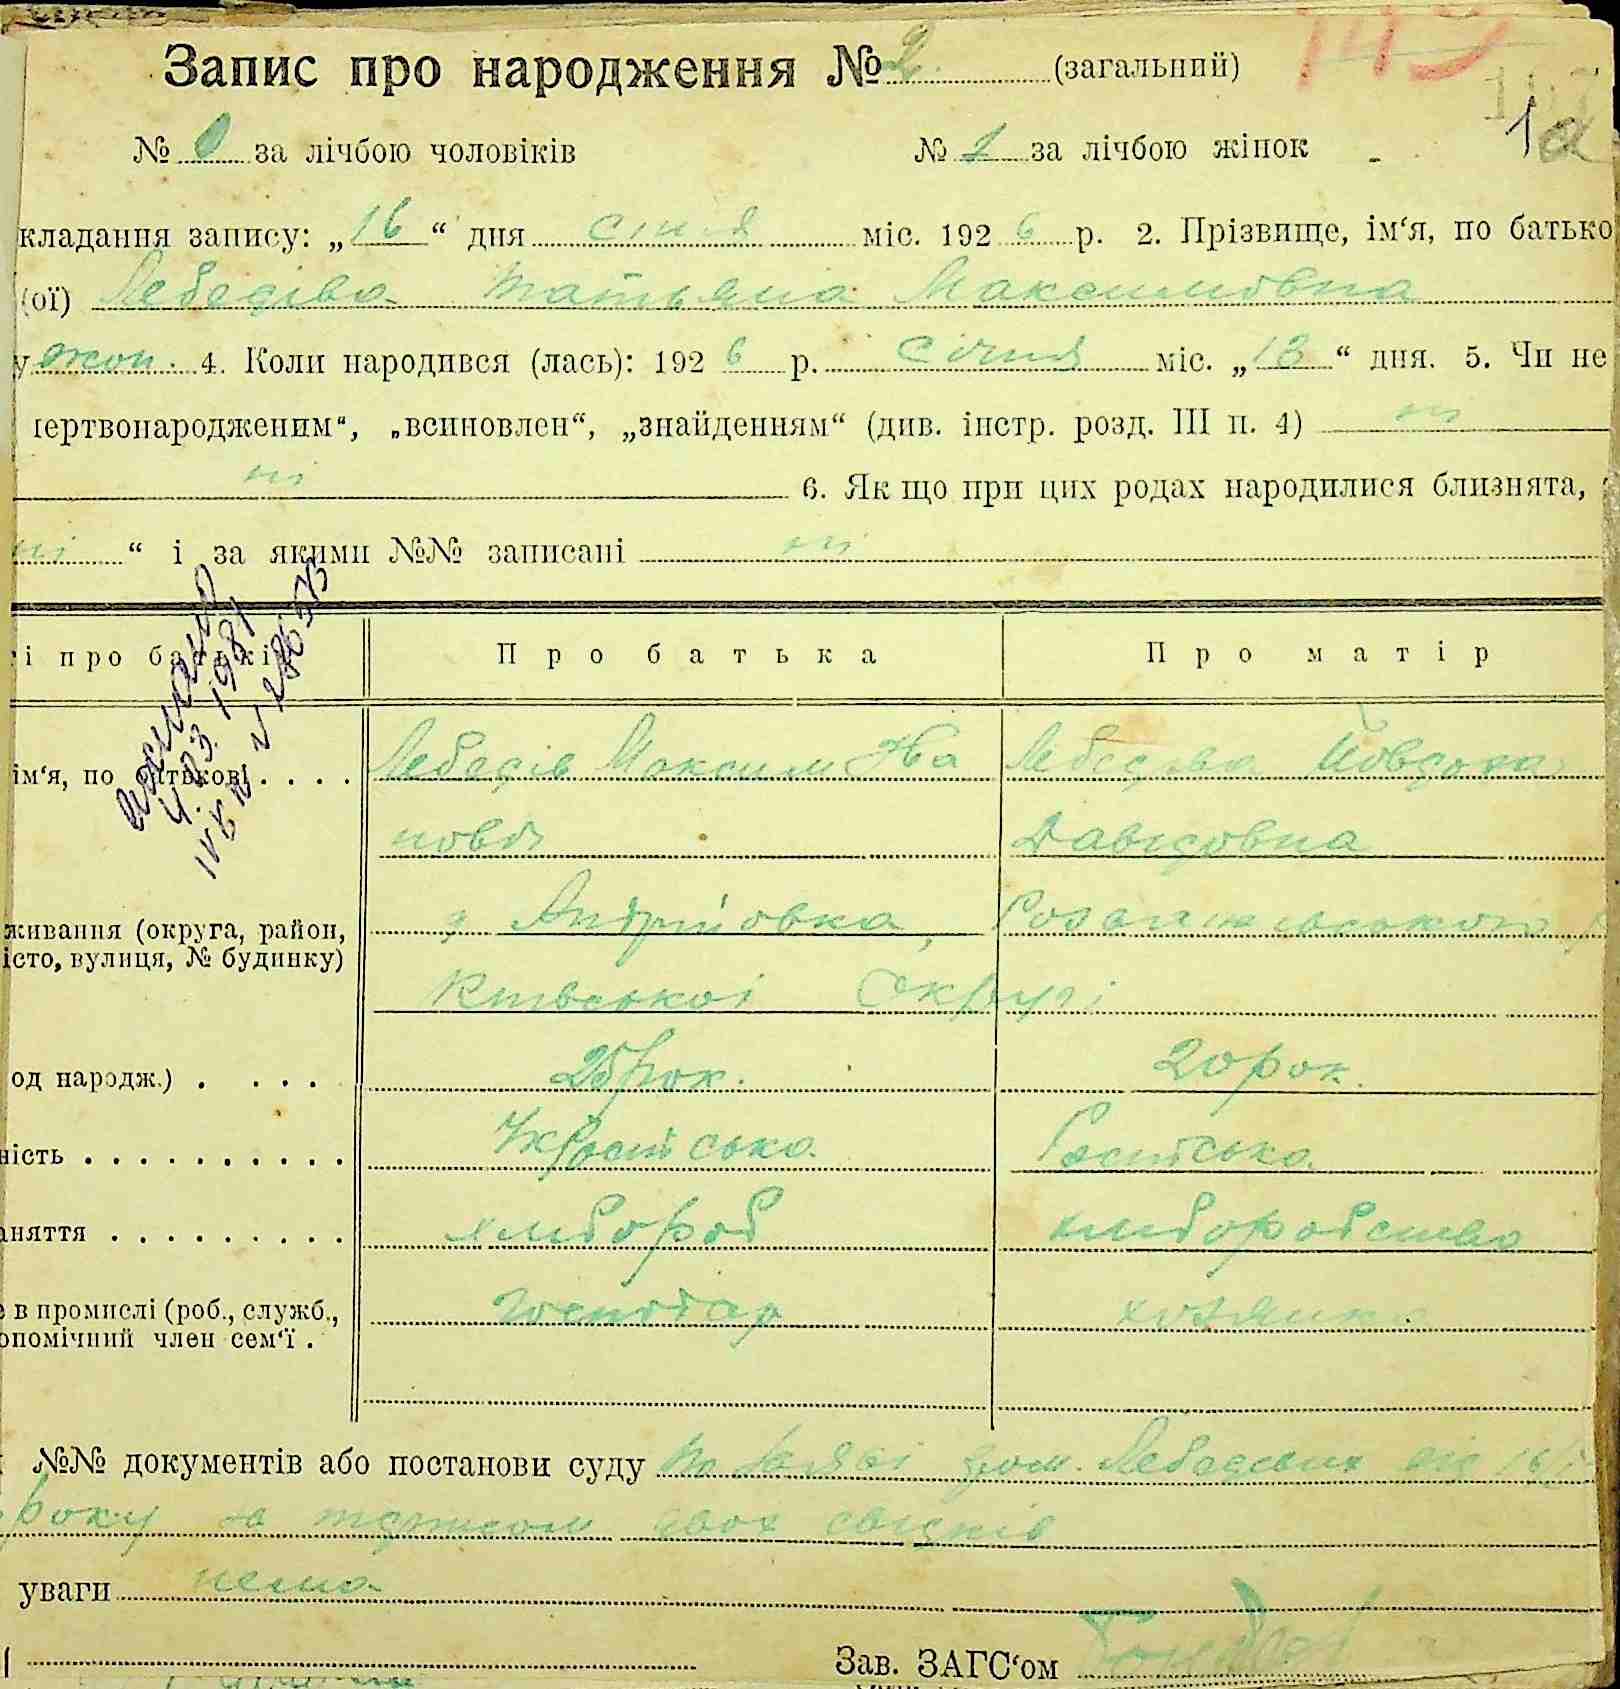 Запис про народження № 2 (загальний)
149
№ 0 за лічбою чоловіків № 2 за лічбою жінок
кладання запису: „16“ дня січня міс. 1926 р. 2. Прізвище, ім‘я, по батько
(ої) Лебедіва Татьяна Максимовна
у жон. 4. Коли народився (лась): 1926 р. січня міс. „13“ дня. 5. Чи не
іертвонародженим“, „всиновлен“, „знайденням“ (див. інстр. розд. III п. 4) ні
ні 6. Як що при цих родах народилися близнята,
ні “ і за якими №№ записані ні
і про батьків Про батька Про матір
4.03.1981
ім‘я, по батькові . . . . Лебедів Максим Ива Лебедіва Йовдоха
новіч Давидовна
живання (округа, район, д Андріївка, Розважівського р
істо, вулиця, № будинку)
Київської Округі
од народж.) . . . . 25 рок. 20 рок.
ність . . . . . . . . . . Українська Російська
аняття . . . . . . . . . хлібороб хліборобство
е в промислі (роб., служб., господар хозяйка
ономічний член сем‘ї .
№№ документів або постанови суду По заяві гром. Лебедівих від 16/I
року за підписом двох свідків
уваги нема
Зав. ЗАГС‘ом